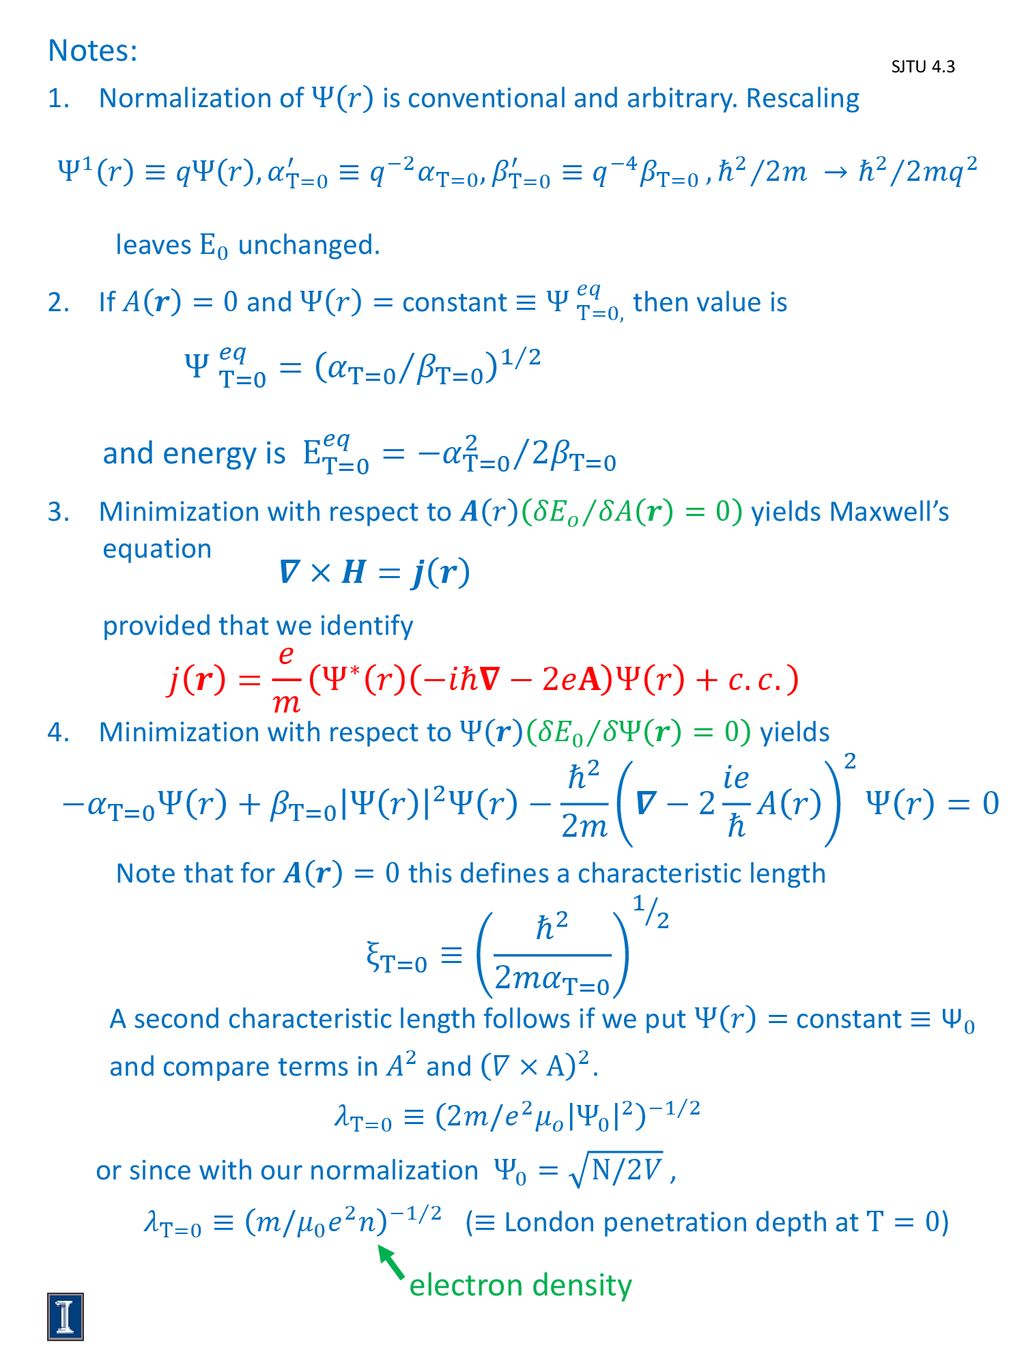 Notes:
SJTU 4.3
1. Normalization of Ψ(r) is conventional and arbitrary. Rescaling
Ψ¹(r) ≡ qΨ(r), α′_{T=0} ≡ q⁻²α_{T=0}, β′_{T=0} ≡ q⁻⁴β_{T=0} , ℏ²/2m → ℏ²/2mq²
leaves E₀ unchanged.
2. If A(r) = 0 and Ψ(r) = constant ≡ Ψ^{eq}_{T=0,} then value is
Ψ^{eq}_{T=0} = (α_{T=0}/β_{T=0})^{1/2}
and energy is E^{eq}_{T=0} = −α²_{T=0}/2β_{T=0}
3. Minimization with respect to A(r)(δE_o/δA(r) = 0) yields Maxwell’s
equation
∇ × H = j(r)
provided that we identify
j(r) = e/m (Ψ*(r)(−iℏ∇ − 2eA)Ψ(r) + c.c.)
4. Minimization with respect to Ψ(r)(δE₀/δΨ(r) = 0) yields
−α_{T=0}Ψ(r) + β_{T=0}|Ψ(r)|²Ψ(r) − ℏ²/2m (∇ − 2 ie/ℏ A(r))² Ψ(r) = 0
Note that for A(r) = 0 this defines a characteristic length
ξ_{T=0} ≡ (ℏ²/2mα_{T=0})^{1/2}
A second characteristic length follows if we put Ψ(r) = constant ≡ Ψ₀
and compare terms in A² and (∇ × A)².
λ_{T=0} ≡ (2m/e²μ_o|Ψ₀|²)^{−1/2}
or since with our normalization Ψ₀ = √(N/2V) ,
λ_{T=0} ≡ (m/μ₀e²n)^{−1/2} (≡ London penetration depth at T = 0)
electron density
I